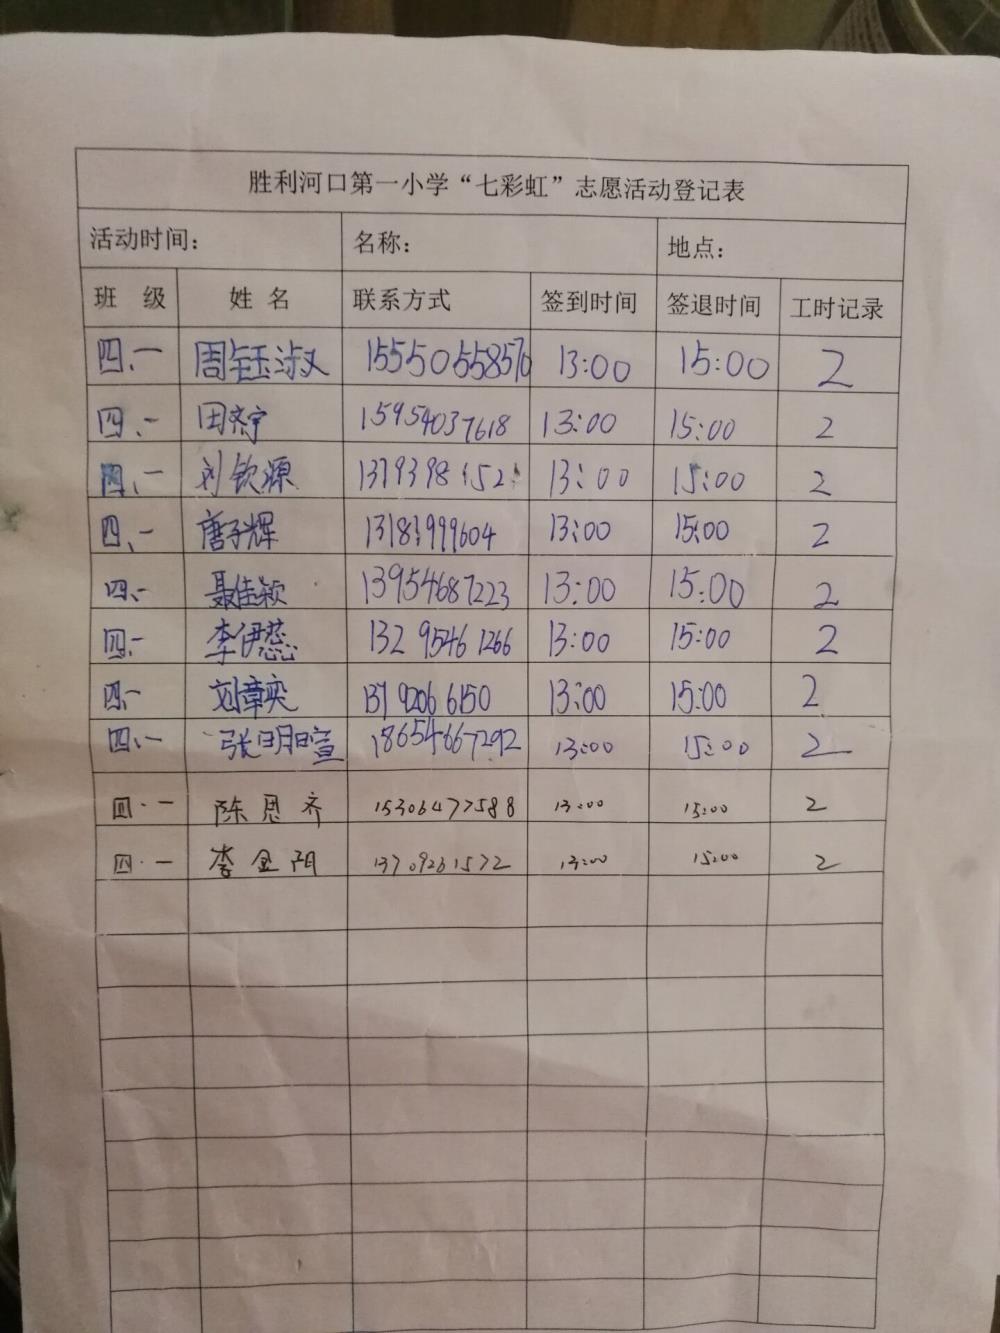 胜利河口第一小学“七彩虹”志愿活动登记表
活动时间： 名称： 地点：
班 级 姓 名 联系方式 签到时间 签退时间 工时记录
四、一 周钰淑 15550558570 13:00 15:00 2
四、一 田齐宇 15954037618 13:00 15:00 2
四、一 刘钦源 13:00 15:00 2
四、一 唐子辉 13:00 15:00 2
四、一 聂佳颖 13954687223 13:00 15:00 2
四、一 李伊蕊 132 9546 1266 13:00 15:00 2
四、一 刘章奕 137 9206 6150 13:00 15:00 2
四、一 张明暄 18654667292 13:00 15:00 2
四·一 陈思齐 15306477588 13:00 15:00 2
四·一 李金阳 13709261572 13:00 15:00 2